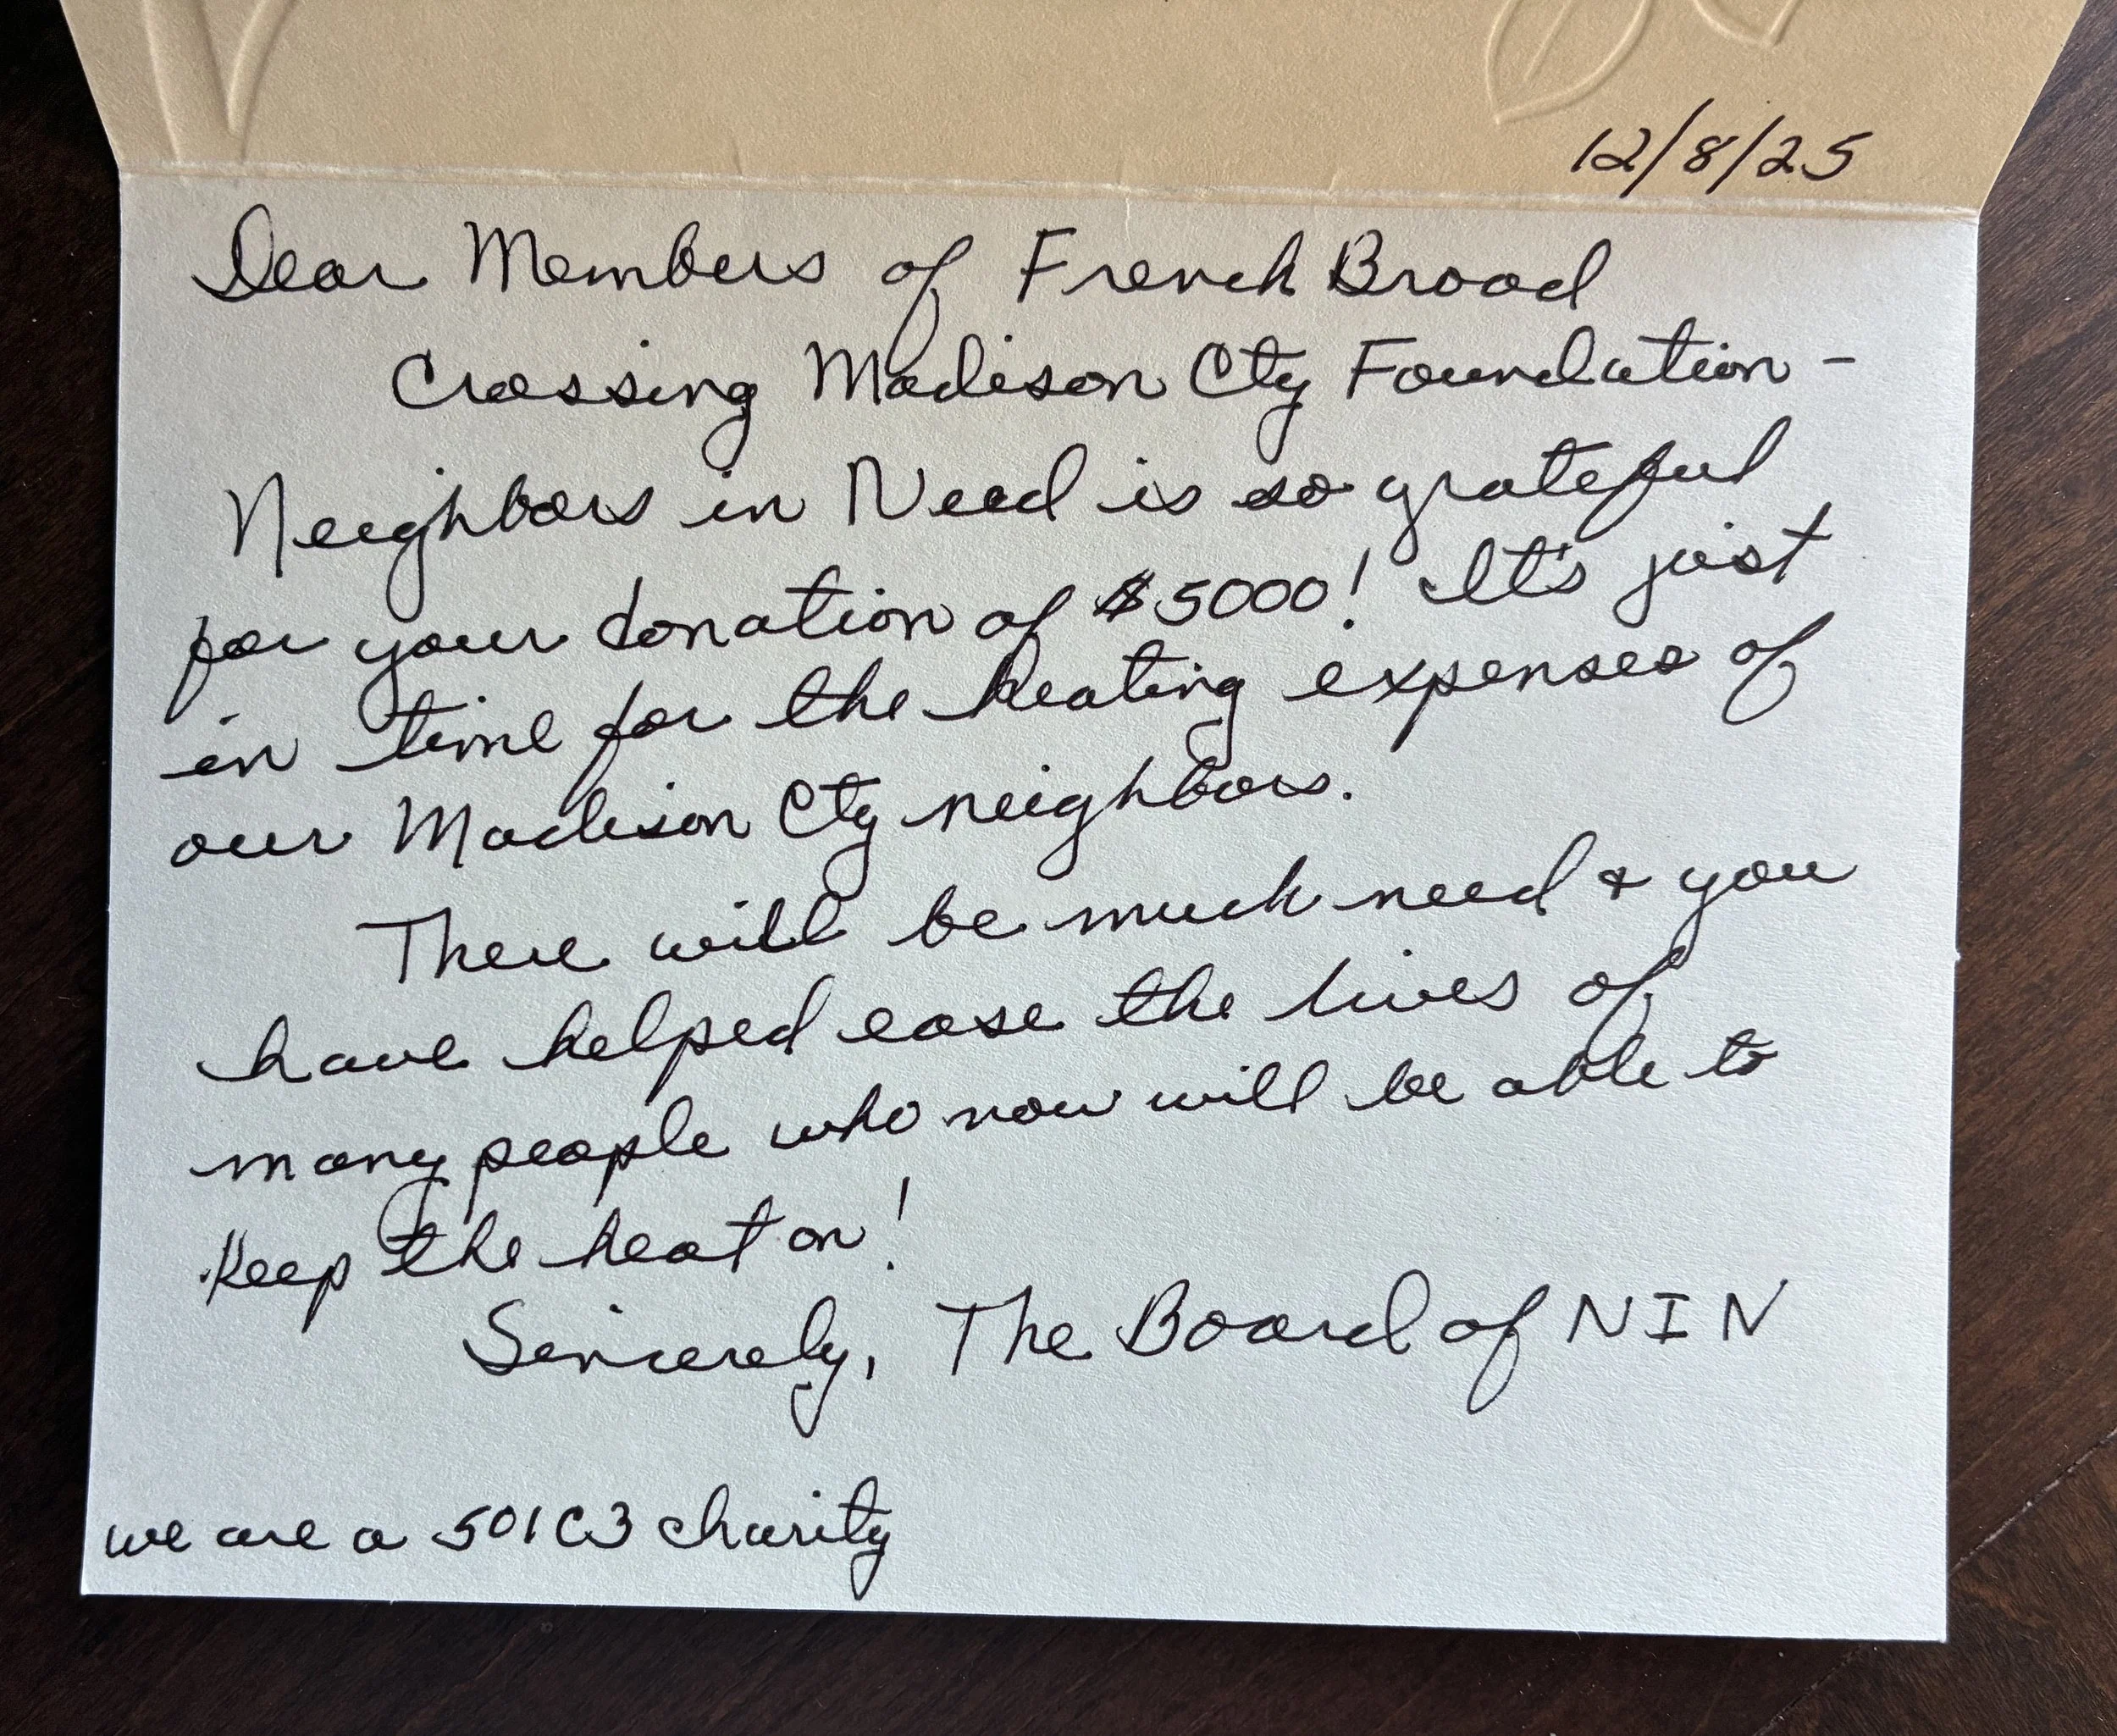 12/8/25
Dear Members of French Broad
Crossing Madison Cty Foundation -
Neighbors in Need is so grateful
for your donation of $5000! It's just
in time for the heating expenses of
our Madison Cty neighbors.
There will be much need & you
have helped ease the lives of
many people who now will be able to
keep the heat on!
Sincerely, The Board of NIN
we are a 501C3 charity